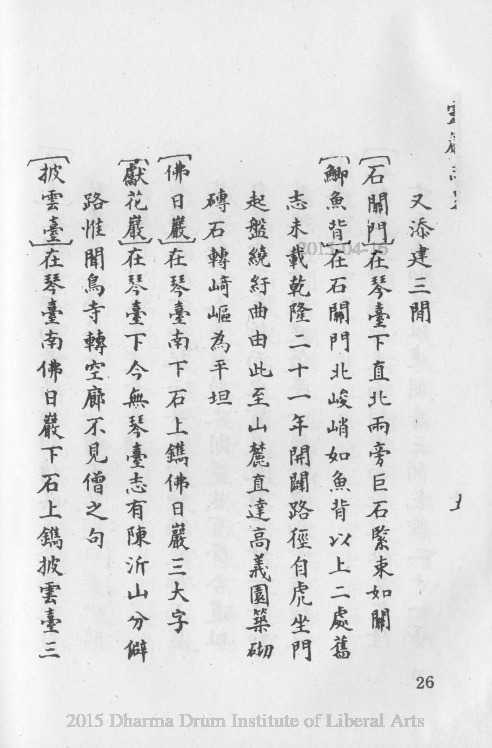 又添建三間
[石關門]在琴臺下直北兩旁巨石緊束如關
[鯽魚背]在石關門北峻峭如魚背以上二處舊
志未載乾隆二十一年開闢路徑自虎坐門
起盤繞紆曲由此至山麓直達高義園築砌
磚石轉崎嶇為平坦
[佛日巖]在琴臺南下石上鐫佛日巖三大字
[獻花巖]在琴臺下今無琴臺志有陳沂山分僻
路惟聞鳥寺轉空廊不見僧之句
[披雲臺]在琴臺南佛日巖下石上鐫披雲臺三
26
2015-04-16
2015 Dharma Drum Institute of Liberal Arts